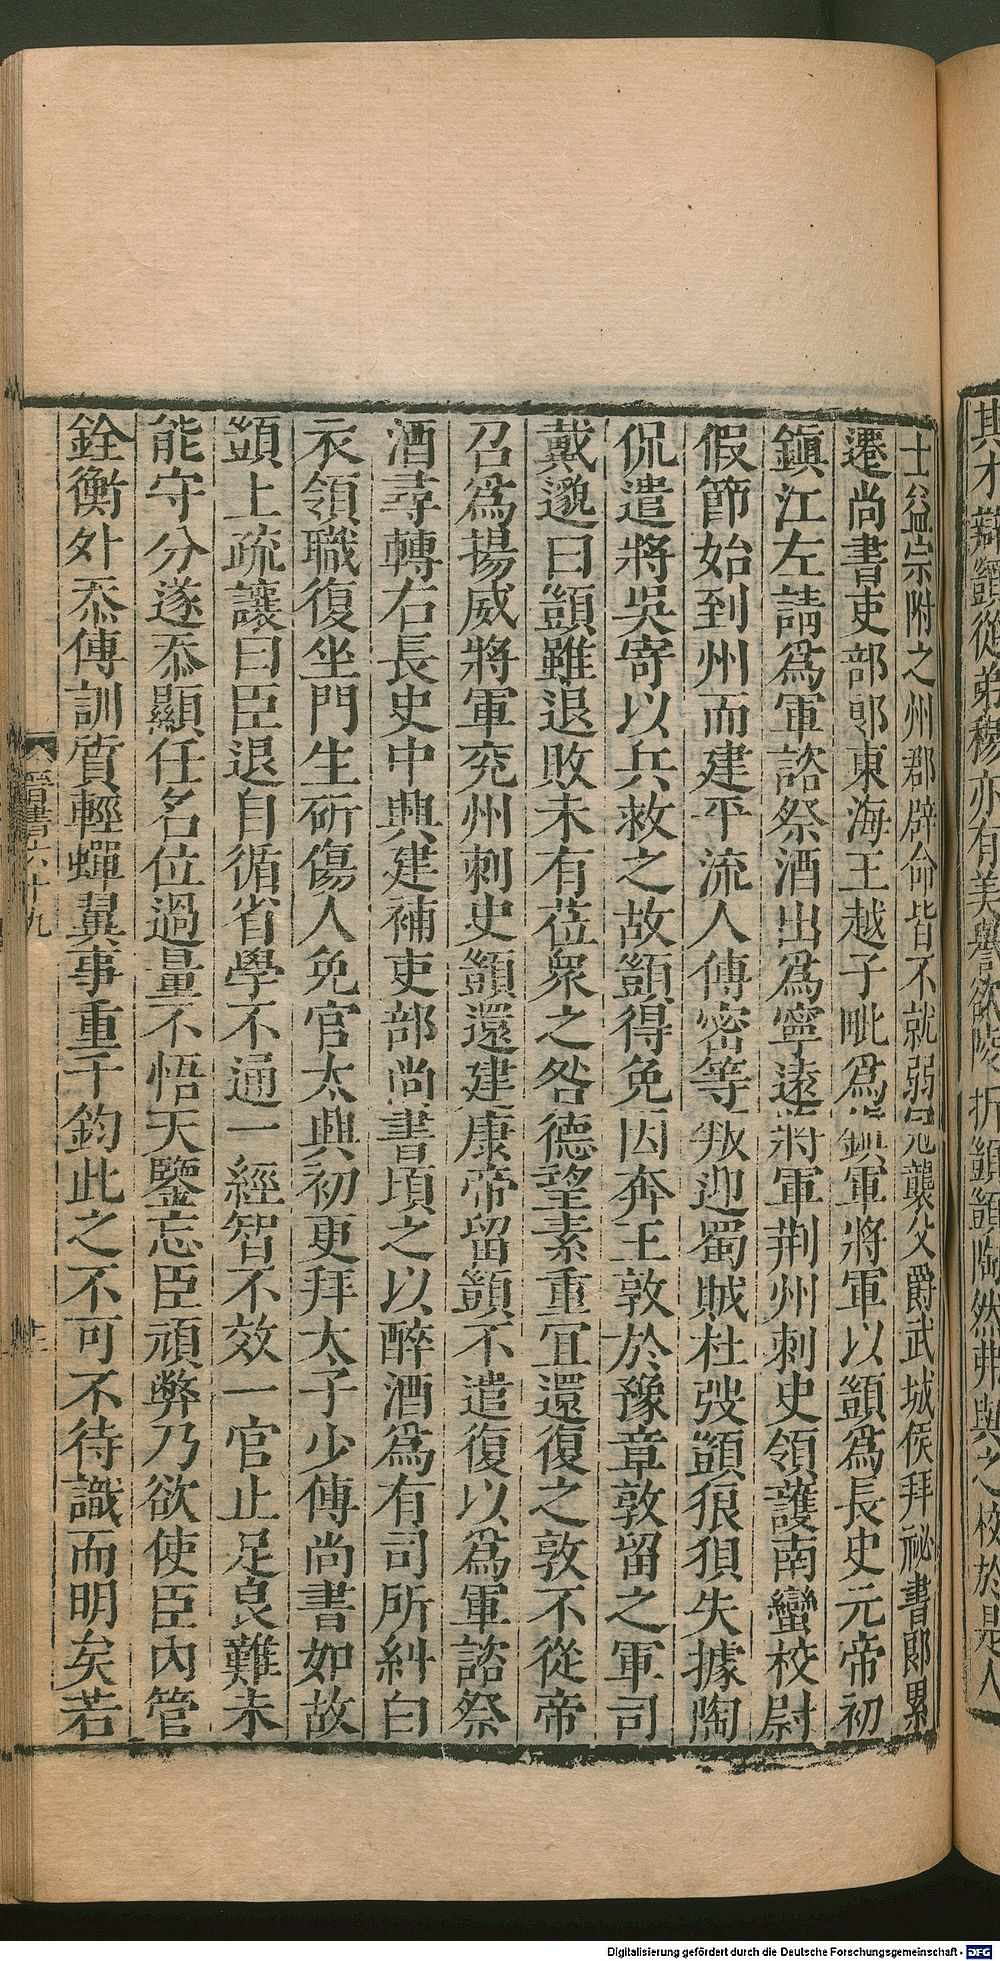 其才辯顗從弟穆亦有美譽欲陵折顗顗陶然弗與之校於是人
士益宗附之州郡辟命皆不就弱冠襲父爵武城侯拜祕書郎累
遷尚書吏部郎東海王越子毗爲鎮軍將軍以顗爲長史元帝初
鎮江左請爲軍諮祭酒出爲寧遠將軍荆州刺史領護南蠻校尉
假節始到州而建平流人傅密等叛迎蜀賊杜弢顗狼狽失據陶
侃遣將吳寄以兵救之故顗得免因奔王敦於豫章敦留之軍司
戴邈曰顗雖退敗未有莅衆之咎德望素重宜還復之敦不從帝
召爲揚威將軍兖州刺史顗還建康帝留顗不遣復以爲軍諮祭
酒尋轉右長史中興建補吏部尚書頃之以醉酒爲有司所糾白
衣領職復坐門生斫傷人免官太興初更拜太子少傅尚書如故
顗上疏讓曰臣退自循省學不通一經智不效一官止足良難未
能守分遂忝顯任名位過量不悟天鑒忘臣頑弊乃欲使臣內管
銓衡外忝傅訓質輕蟬翼事重千鈞此之不可不待識而明矣若
晉書六十九
Digitalisierung gefördert durch die Deutsche Forschungsgemeinschaft - DFG